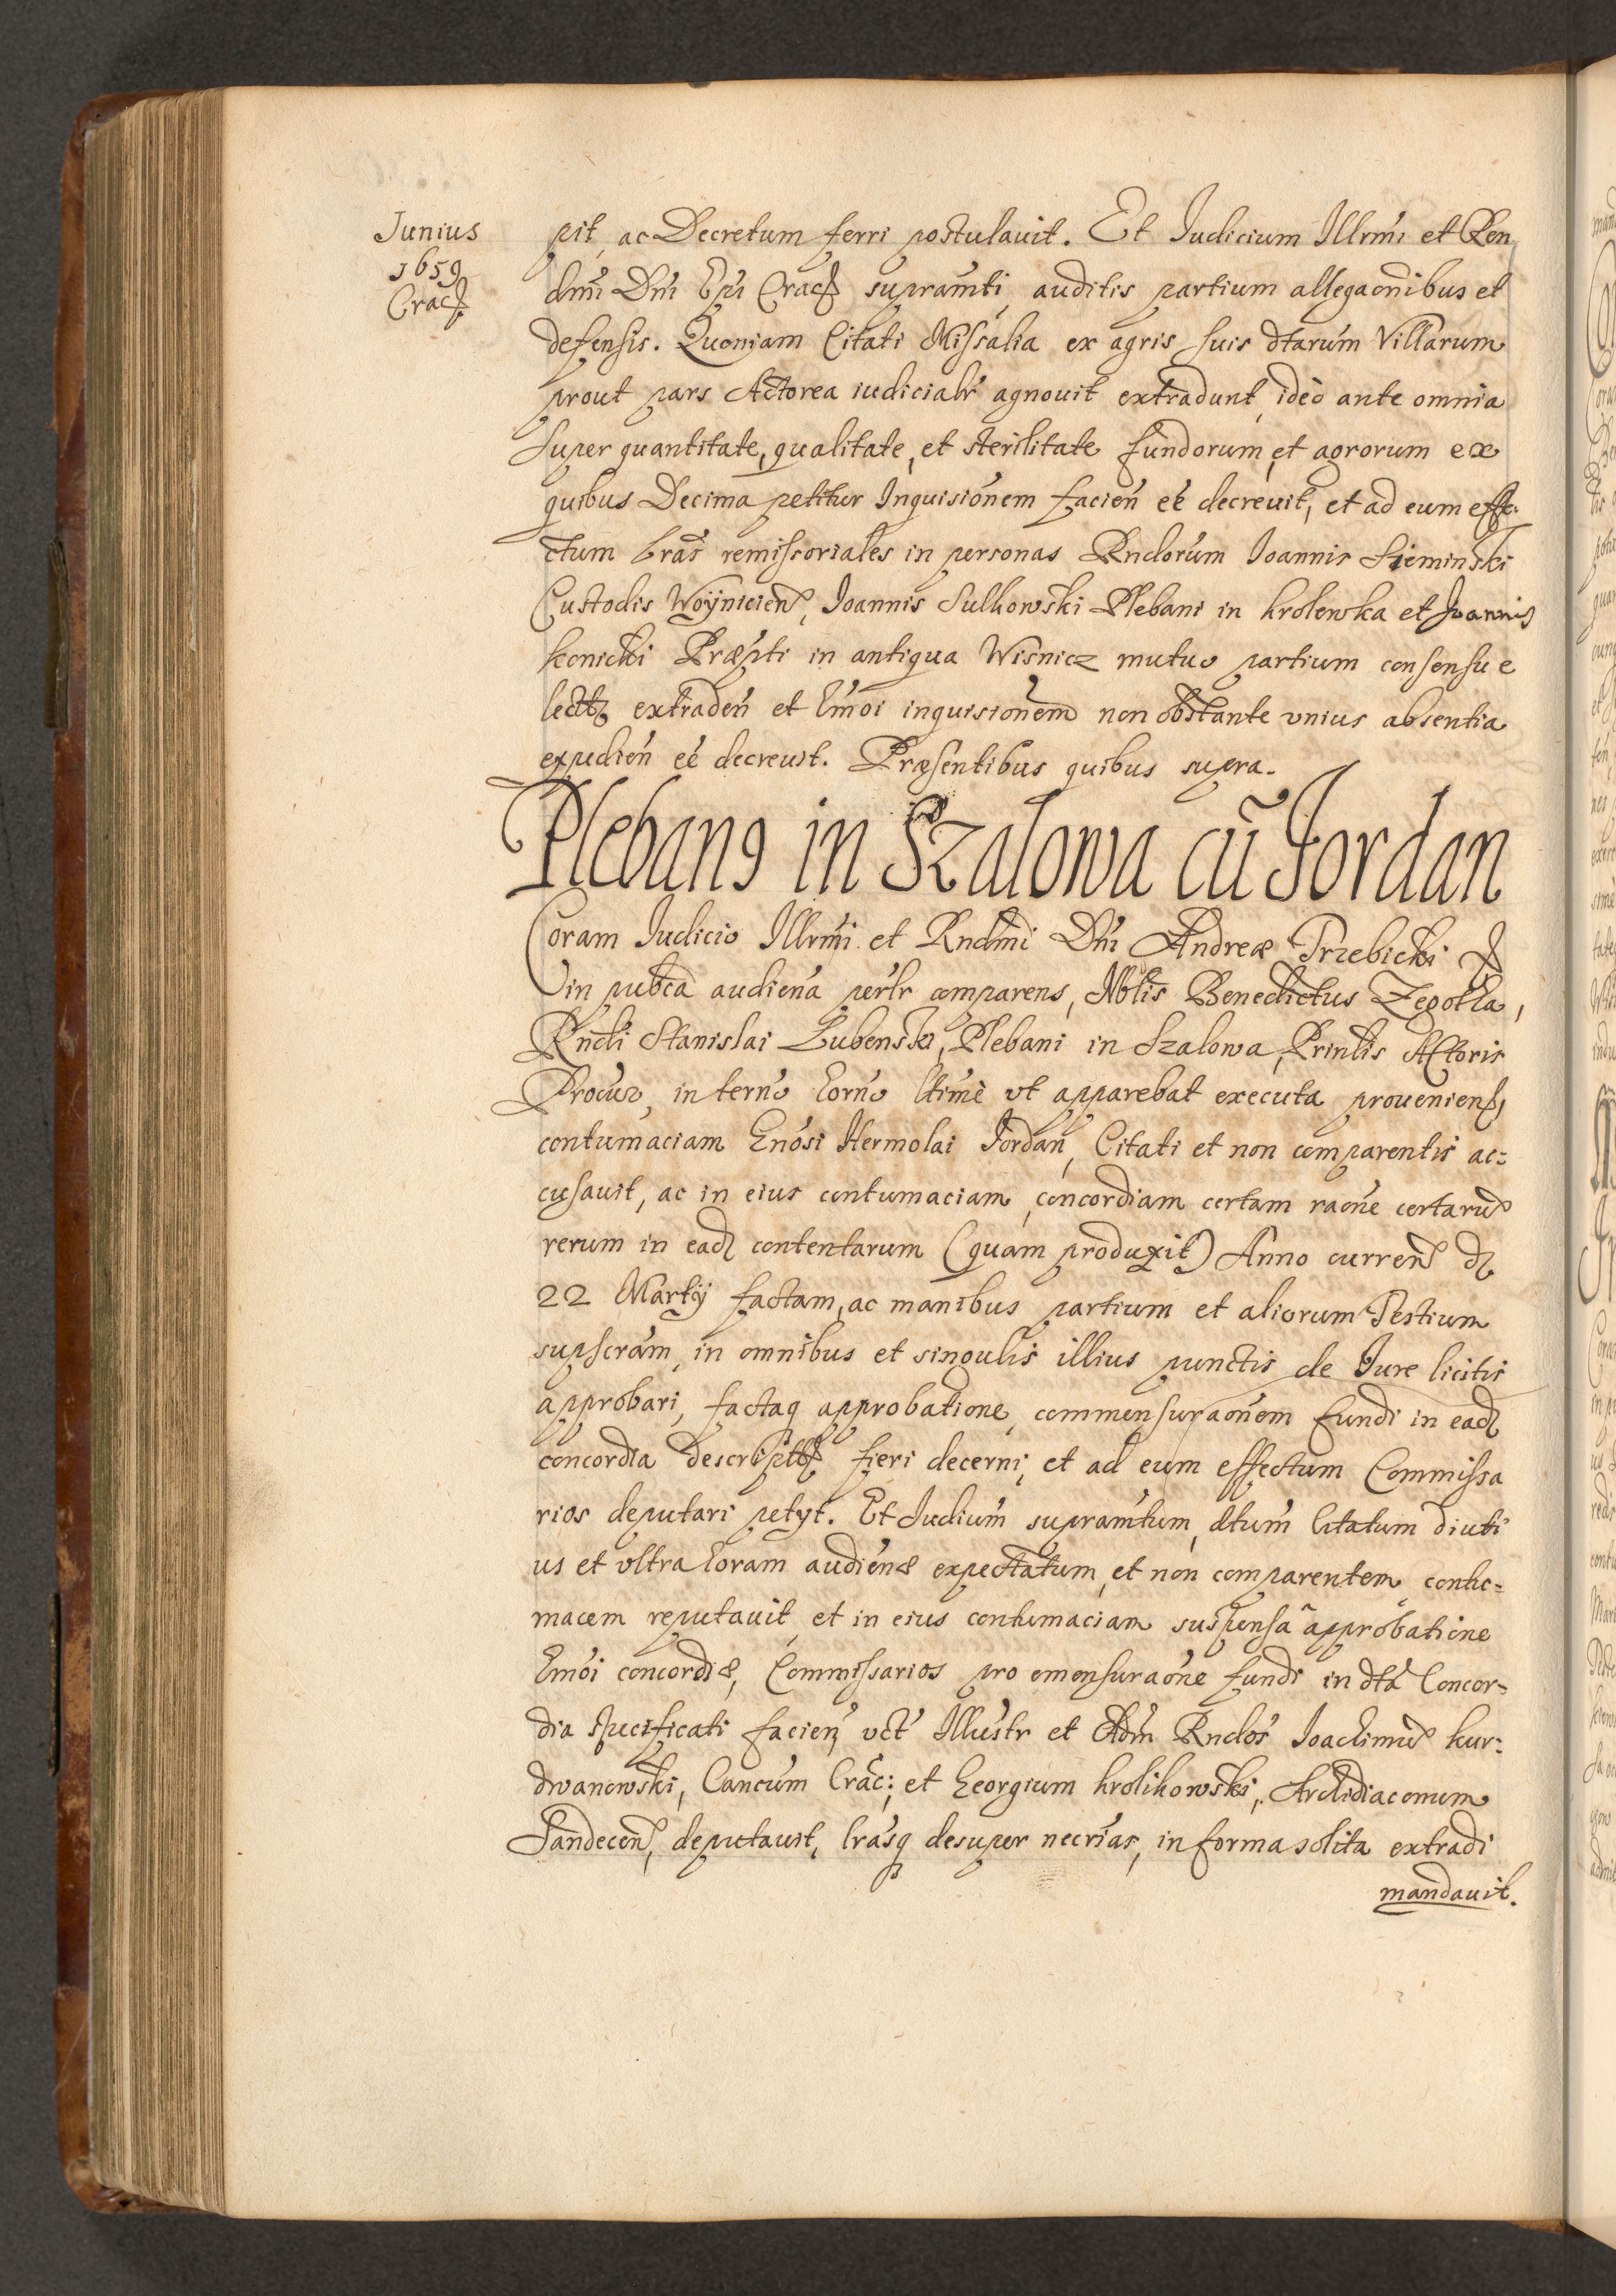 Junius
1659
Crac
pit, ac Decretum ferri postulauit. Et Judicium Illrmi et Ren
dmi Dni Epi Crac supramti, auditis partium allegaonibus et
defensis. Quoniam Citati Missalia ex agris suis dtarum Villarum
prout pars Actorea iudicialr agnouit extradunt, ideo ante omnia
super quantitate, qualitate, et sterilitate fundorum, et agrorum ex
quibus Decima petitur Inquisionem facien eé decreuit, et ad eum effe
ctum lras remissoriales in personas Rndorum Joannis Sieminski
Custodis Woynicien, Joannis Sulkowski Plebani in krolowka et Joannis
konicki Præpti in antiqua Wisnicz mutuo partium consensu e
lect extraden et hmoi inquisionem non obstante vnius absentia
expedien eé decreuit. Præsentibus quibus supra.
Plebang in Szalowa cū Jordan
Coram Judicio Illrmi et Rndmi Dni Andreæ Trzebicki
in publca audiena perlr comparens, Nblis Benedictus Zegotha,
Rndi Stanislai Lubenski, Plebani in Szalowa, Prinlis Actoris
Procur, in terno horno ltimè vt apparebat executa prouenien,
contumaciam Gnosi Hermolai Jordan, Citati et non comparentis ac=
cusauit, ac in eius contumaciam, concordiam certam raone certaru
rerum in ead contentarum (quam produxit) Anno curren d
22 Martÿ factam, ac manibus partium et aliorum Testium
supscram, in omnibus et singulis illius punctis de Jure licitis
approbari, factaq approbatione, commensuraonem fundi in ead
concordia descript fieri decerni, et ad eum effectum Commissa
rios deputari petyt. Et Judium supramtum, dtum Citatum diuti
us et vltra horam audienæ expectatum, et non comparentem contu=
macem reputauit, et in eius contumaciam suspensâ approbatione
hmoi concordiæ, Commissarios pro emensuraone fundi in dtâ Concor=
dia specificati facien vct Illustr et Adm Rndos Joachimu kur=
dwanowski, Cancum Crac; et Georgium krolikowski, Archidiaconum
Sandecen, deputauit, lrasq desuper necrias, in forma solita extradi
mandauit.